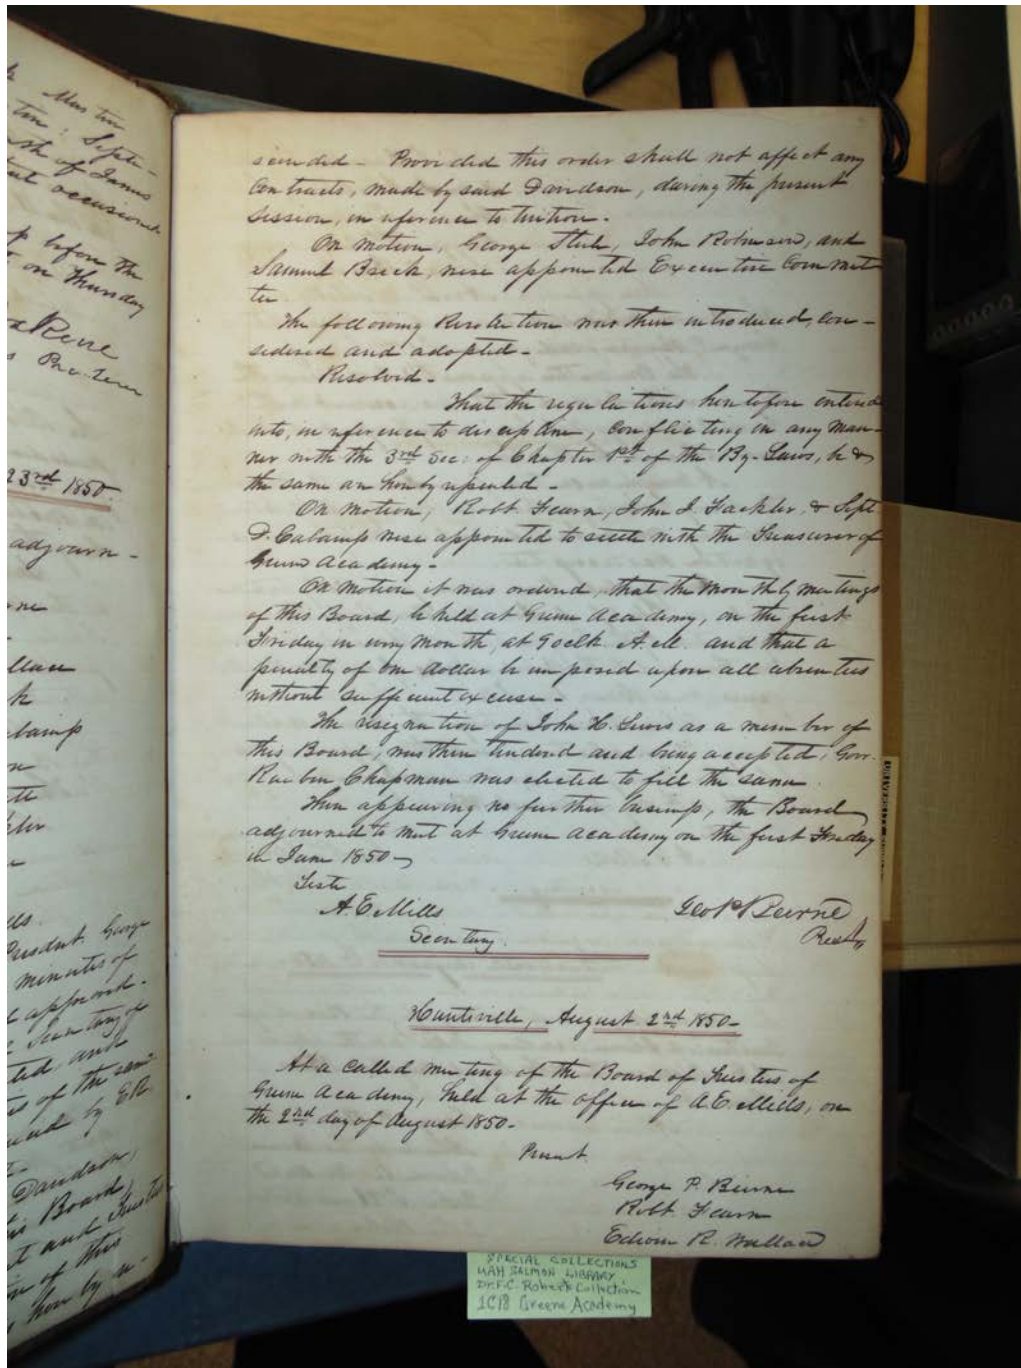 Mar tin
tin; Septi-
of James
occasioned
before the
on Thursday
Pro. Tem
23rd 1850.
adjourn-
llace
k
lcamp
President George
minutes of
approved.
Secretary of
and
of the same
by ER
Davidson,
Board,
and Trustee
of this
by re-
scinded - Provided this order shall not affect any
Contracts, made by said Davidson, during the present
Session, in reference to tuition.
On motion, George Steele, John Robinson, and
Samuel Breck, were appointed Executive Commit
tee
The following Resolution was then introduced, con-
sidered and adopted -
Resolved -
That the regulations heretofore entered
into, in reference to discipline, conflicting in any man-
ner with the 3rd Sec: of Chapter 1st of the By-Laws, be &
the same are hereby repealed -
On motion, Robt Fearn, John J. Fackler, & Sept.
D. Cabaniss were appointed to settle with the Treasurer of
Greene Academy -
On motion it was ordered, that the monthly meetings
of this Board, be held at Greene Academy, on the first
Friday in every month, at 9 oclk A.M. and that a
penalty of one dollar be imposed upon all absentees
without sufficient excuse -
The resignation of John H. Lewis as a member of
this Board, was then tendered and being accepted, Gov.
Reuben Chapman was elected to fill the same
There appearing no further business, the Board
adjourned to meet at Greene Academy on the first Friday
in June 1850 -
Teste
A. E. Mills
Secretary.
Geo P Beirne
Prest
Huntsville, August 2nd 1850 -
At a called meeting of the Board of Trustees of
Greene Academy, held at the office of A. E. Mills, on
the 2nd day of August 1850 -
Present
George P. Beirne
Robt. Fearn
Edwin R. Wallace
SPECIAL COLLECTIONS
UAH SALMON LIBRARY
Dr. F.C. Roberts Collection
1C18 Greene Academy